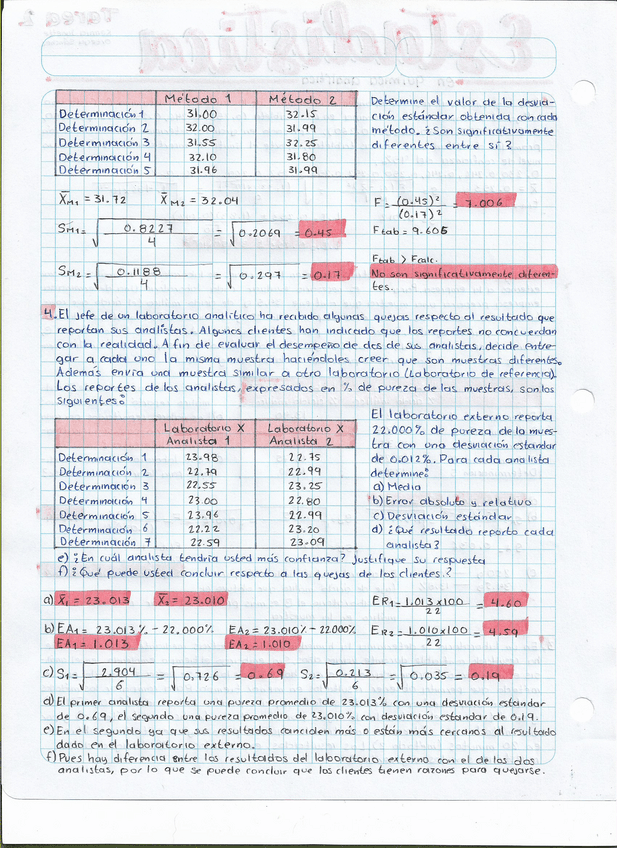 Tarea 2
Estadística
en química analítica
Método 1 Método 2
Determinación 1 31.00 32.15
Determinación 2 32.00 31.99
Determinación 3 31.55 32.25
Determinación 4 32.10 31.80
Determinación 5 31.96 31.99
Determine el valor de la desvia-
ción estándar obtenida con cada
método. ¿Son significativamente
diferentes entre sí?
X̄M1 = 31.72 X̄M2 = 32.04
SM1 = √(0.8227/4) = √0.2069 = 0.45
SM2 = √(0.1188/4) = √0.297 = 0.17
F = (0.45)²/(0.17)² = 7.006
Ftab = 9.605
Ftab > Fcalc.
No son significativamente diferen-
tes.
4. El jefe de un laboratorio analítico ha recibido algunas quejas respecto al resultado que
reportan sus analistas. Algunos clientes han indicado que los reportes no concuerdan
con la realidad. A fin de evaluar el desempeño de dos de sus analistas, decide entre-
gar a cada uno la misma muestra haciéndoles creer que son muestras diferentes.
Además envía una muestra similar a otro laboratorio (Laboratorio de referencia).
Los reportes de los analistas, expresados en % de pureza de las muestras, son los
siguientes:
Laboratorio X Laboratorio X
Analista 1 Analista 2
Determinación 1 23.98 22.75
Determinación 2 22.79 22.99
Determinación 3 22.55 23.25
Determinación 4 23.00 22.80
Determinación 5 23.96 22.99
Determinación 6 22.22 23.20
Determinación 7 22.59 23.09
El laboratorio externo reporta
22.000% de pureza de la mues-
tra con una desviación estándar
de 0.012%. Para cada analista
determine:
a) Media
b) Error absoluto y relativo
c) Desviación estándar
d) ¿Qué resultado reporto cada
analista?
e) ¿En cuál analista tendría usted más confianza? Justifique su respuesta
f) ¿Qué puede usted concluir respecto a las quejas de los clientes?
a) X̄1 = 23.013 X̄2 = 23.010
b) EA1 = 23.013% - 22.000% EA2 = 23.010% - 22.000%
EA1 = 1.013 EA2 = 1.010
ER1 = 1.013x100/22 = 4.60
ER2 = 1.010x100/22 = 4.59
c) S1 = √(2.904/6) = √0.726 = 0.69 S2 = √(0.213/6) = √0.035 = 0.19
d) El primer analista reporta una pureza promedio de 23.013% con una desviación estándar
de 0.69, el segundo una pureza promedio de 23.010% con desviación estándar de 0.19.
e) En el segundo ya que sus resultados coinciden más o están más cercanos al resultado
dado en el laboratorio externo.
f) Pues hay diferencia entre los resultados del laboratorio externo con el de los dos
analistas, por lo que se puede concluir que los clientes tienen razones para quejarse.